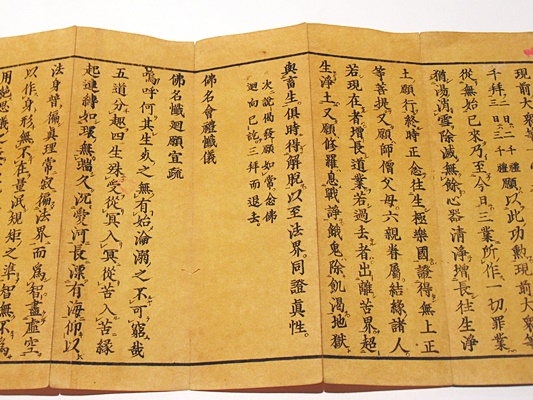 現前大衆
願以此功勲現前大衆等
從無始已來乃至今日三業所作一切罪業
猶湯消雪除滅無餘心器清淨增長往生淨
土願行終時正念往生極樂國證得無上正
等菩提又願師僧父母六親眷屬結緣諸人
若現在者增長道業若過去者出離苦界超
生淨土又願修羅息戰諍餓鬼除飢渴地獄
與畜生俱時得解脫以至法界同證真性
次說偈發願如常念佛
迴向已訖三拜而退去
佛名會禮懺儀
佛名懺迴願宣疏
嗚呼何其生死之無有始淪溺之不可窮哉
五道分趣四生殊受從冥入冥從苦入苦緣
起連轉如環無端久沉愛河長漂有海仰以
法身普徧真理常寂徧法界而爲智盡虛空
以作身形無不在量泯規矩之準智無不爲
用絕思議之